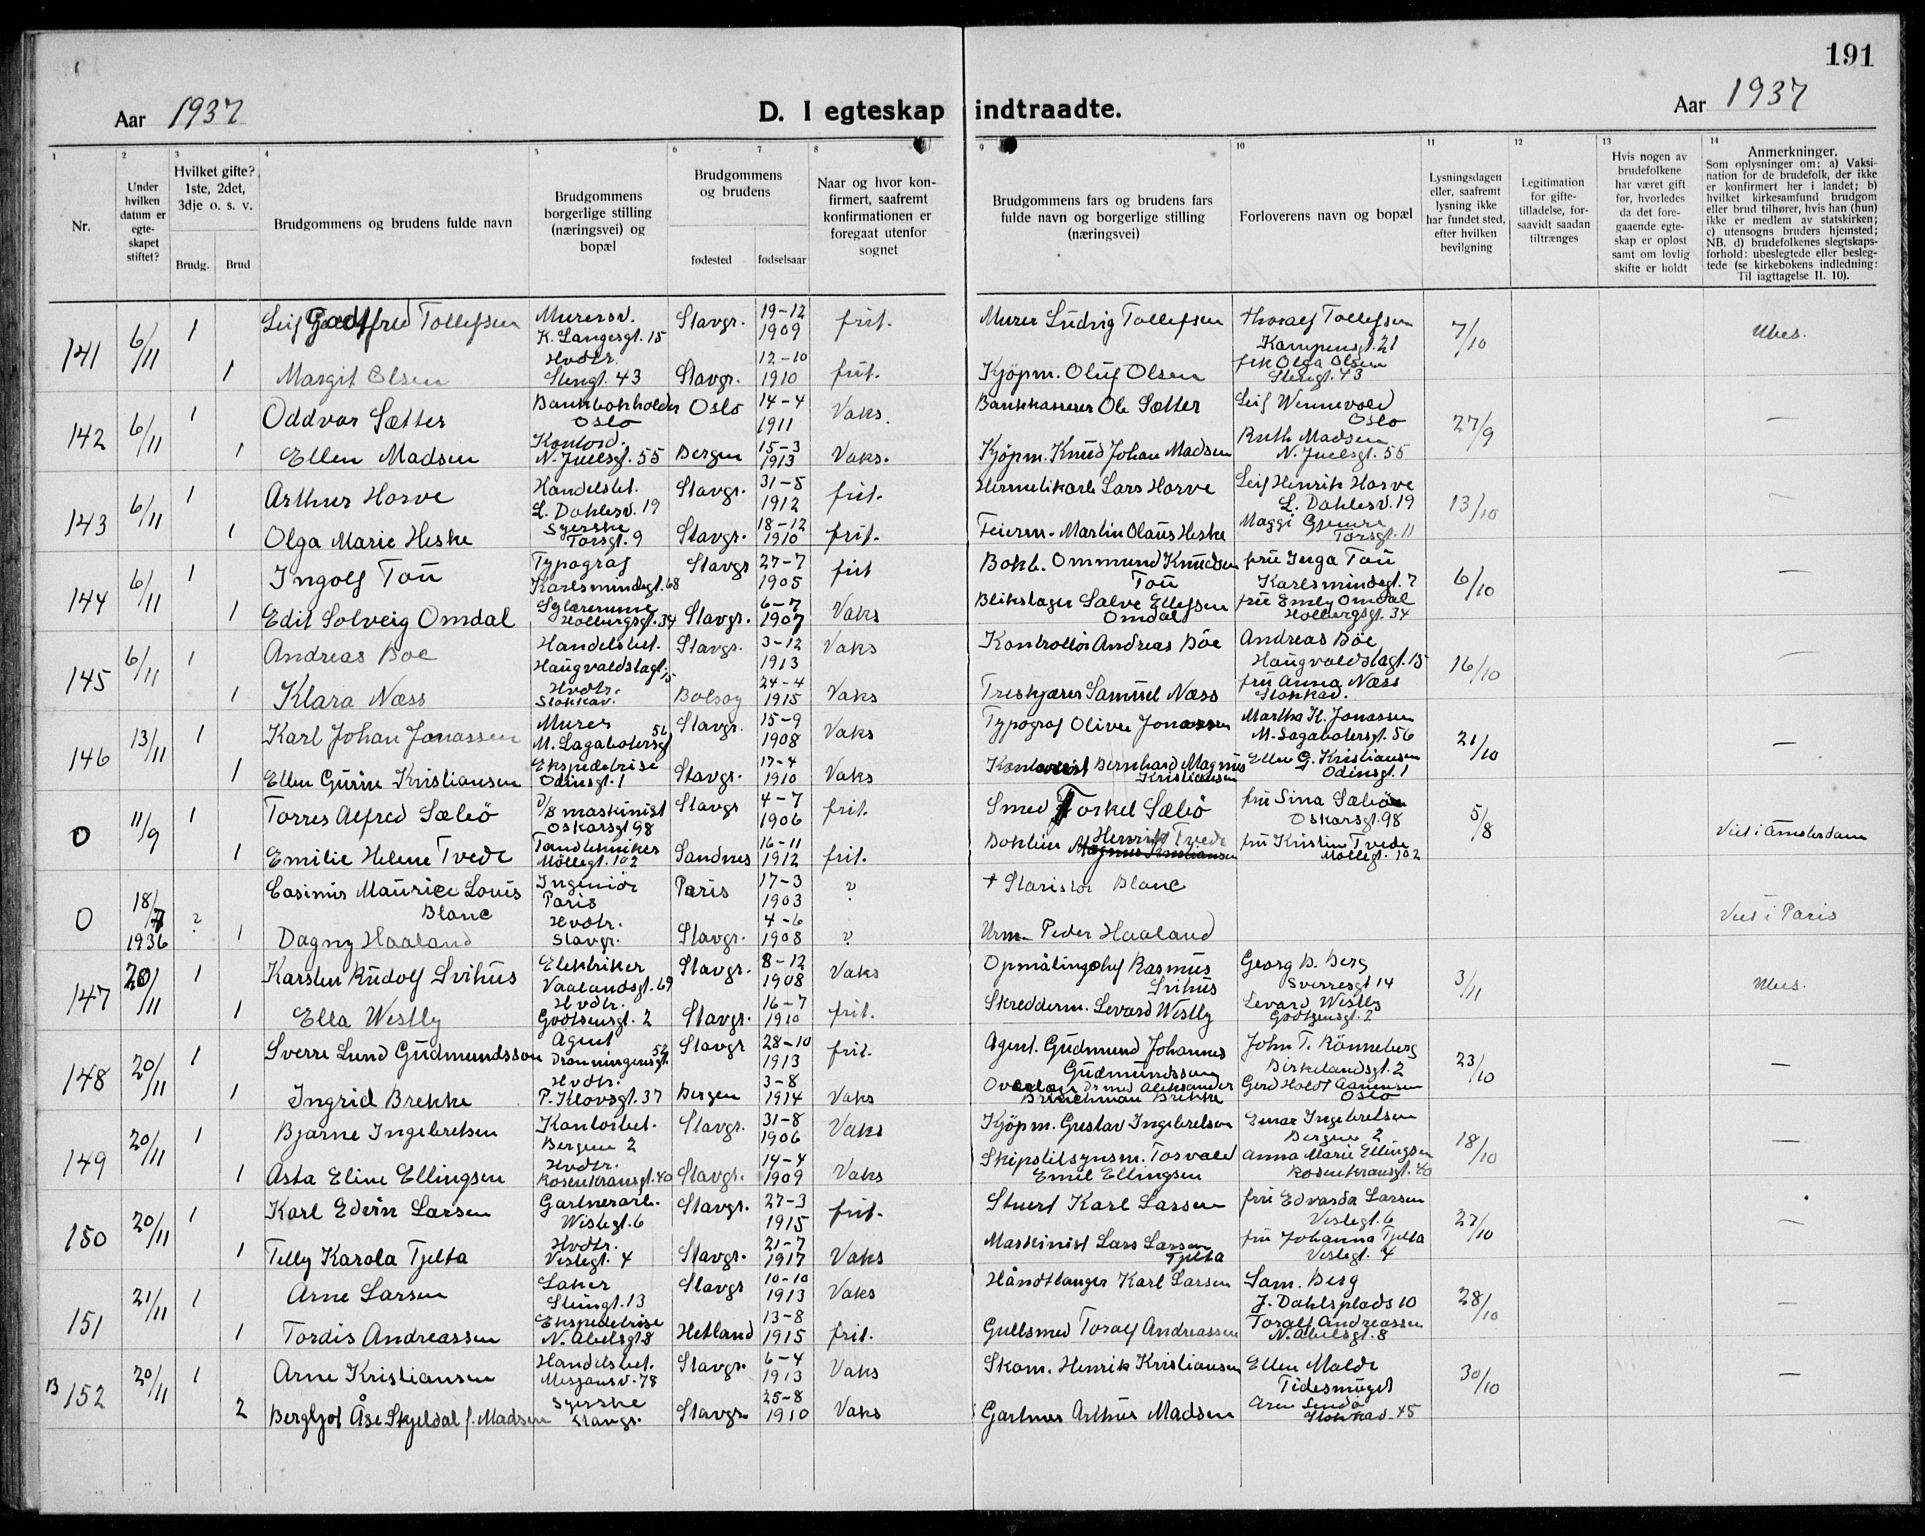 191
Aar 1937
D. I egteskap indtraadte.
Aar 1937
1 2 3 4 5 6 7 8 9 10 11 12 13 14
Nr.
Under hvilken datum er egte-skapet stiftet?
Hvilket gifte? 1ste, 2det, 3dje o. s. v.
Brudg. Brud
Brudgommens og brudens fulde navn
Brudgommens borgerlige stilling (næringsvei) og bopæl
Brudgommens og brudens
fødested fødselsaar
Naar og hvor kon-firmert, saafremt konfirmationen er foregaat utenfor sognet
Brudgommens fars og brudens fars fulde navn og borgerlige stilling (næringsvei)
Forloverens navn og bopæl
Lysningsdagen eller, saafremt lysning ikke har fundet sted, efter hvilken bevilgning
Legitimation for gifte-tilladelse, for-saavidt saadan tiltrænges
Hvis nogen av brudefolkene har været gift før, hvorledes da det fore-gaaende egte-skap er opløst samt om lovlig skifte er holdt
Anmerkninger.
Som oplysninger om: a) Vaksi-nation for de brudefolk, der ikke er konfirmert her i landet; b) hvilket kirkesamfund brudgom eller brud tilhører, hvis han (hun) ikke er medlem av statskirken; c) utensogns bruders hjemsted; NB. d) brudefolkenes slegtskaps-forhold: ubeslegtede eller besleg-tede (se kirkebokens indledning: Til iagttagelse II. 10).
141 6/11 1 Leif Godtfred Tollefsen Murersv. K. Langesgt. 15 Stavgr. 19-12 1909 frit. Murer Ludvig Tollefsen Thoralf Tollefsen Kampensgt. 21 7/10 Ubes.
1 Margit Olsen Hvdtr. Stengt. 43 Stavgr. 12-10 1910 frit. Kjöpm. Oluf Olsen frk Olga Olsen Stengt. 43
142 6/11 1 Oddvar Sætter Bankbokholder Oslo Oslo 14-4 1911 Vaks. Bankkasserer Ole Sætter Leif Wennevold Oslo 27/9 —
1 Ellen Madsen Kontord. N. Juelsgt. 55 Bergen 15-3 1913 Vaks. Kjöpm. Knud Johan Madsen Ruth Madsen N. Juelsgt. 55
143 6/11 1 Arthur Horve Handelsbet. L. Dahlesv. 19 Stavgr. 31-8 1912 frit. Hermetikarb Lars Horve Leif Henrik Horve L. Dahlesv. 19 13/10 —
1 Olga Marie Heske Syerske Torsgt. 9 Stavgr. 18-12 1910 frit. Feierm. Martin Olaus Heske Maggi Gjemre Torsgt. 11
144 6/11 1 Ingolf Tou Typograf Karlsmindegt. 68 Stavgr 27-7 1905 frit Bokb. Ommund Knudsen Tou fru Inga Tou Karlsmindegt. 7 6/10 —
1 Edit Solveig Omdal Sylærerinne Holbergsgt. 34 Stavgr. 6-7 1907 Vaks Blikslager Salve Ellefsen Omdal fru Emly Omdal Holbergsgt. 34
145 6/11 1 Andreas Böe Handelsbet. Haugvaldstagt. 15 Stavgr. 3-12 1913 Vaks Kontrollör Andreas Böe Andreas Böe Haugvaldstagt. 15 16/10 —
1 Klara Næss Hvdtr. Stokkav. Bolsöy 24-4 1915 Vaks Treskjærer Samuel Næss fru Anna Næss Stokkav.
146 13/11 1 Karl Johan Jonassen Murer M. Lagabotersgt 56 Stavgr. 15-9 1908 Vaks Typograf Oliver Jonassen Martha K. Jonassen M. Lagabotersgt. 56 21/10 —
1 Ellen Gurine Kristiansen Ekspedetrise Odinsgt. 1 Stavgr. 17-4 1910 Vaks Bernhard Magnus Kristiansen Ellen G. Kristiansen Odinsgt. 1
0 11/9 1 Torres Alfred Sæbö D/S maskinist Oskarsgt 98 Stavgr 4-7 1906 frit. Smed Torkel Sæbö fru Sina Sæbö Oskarsgt. 98 5/8 Viet i Amsterdam
1 Emilie Helene Tvede Tandtekniker Möllegt. 102 Sandnes 16-11 1912 frit. Henrik Tvede fru Kristine Tvede Möllegt. 102
0 18/7 1936 ? Casimir Maurice Louis Blanc Ingeniör Paris Paris 17-3 1903 ? + Blanc Viet i Paris
1 Dagny Haaland Hvdtr. Stavgr. Stavgr. 4-6 1908 ? Urm. Peder Haaland
147 20/11 1 Karsten Rudolf Svihus Elektriker Vaalandsgt. 69 Stavgr. 8-12 1908 Vaks Opmålingschef Rasmus Svihus Georg B. Berg Sverresgt 14 3/11 Ubes.
1 Ella Westly Hvdtr. Godtzensgt. 2 Stavgr. 16-7 1910 frit. Skredderm. Sevard Westly Sevard Westly Godtzensgt. 2
148 20/11 1 Sverre Lund Gudmundsson Agent Dronningensgt. 52 Stavgr 28-10 1913 frit. Agent. Gudmund Johannes Gudmundsson John T. Rönneberg Birkelandsgt. 2 23/10 —
1 Ingrid Brekke Hvdtr. P. Klovsgt. 37 Bergen 3-8 1914 Vaks Overlæge Dr med Aleksander Brinchman Brekke Gerd Holdt Aanensen Oslo
149 20/11 1 Bjarne Ingebretsen Kontorbet. Bergene 2 Stavgr. 31-8 1906 Vaks Kjöpm. Gustav Ingebretsen Einar Ingebretsen Bergene 2 18/10 —
1 Asta Eline Ellingsen Hvdtr. Rosenkransgt. 40 Stavgr. 14-4 1909 Vaks Skipstilsynsm. Torvald Emil Ellingsen Anna Marie Ellingsen Rosenkransgt. 40
150 20/11 1 Karl Edvin Larsen Gartnerarb. Vislegt. 6 Stavgr. 27-3 1915 frit. Stuert Karl Larsen fru Edvarda Larsen Veslegt. 6 27/10 —
1 Telly Karola Tjelta Hvdtr. Veslegt. 4 Stavgr. 21-7 1917 Vaks Maskinist Lars Larsen Tjelta fru Johanna Tjelta Veslegt. 4
151 21/11 1 Arne Larsen Laker Stengt. 13 Stavgr 10-10 1913 Vaks Håndtlanger Karl Larsen Sam. Berg J. Dahlsplads 10 28/10 —
1 Tordis Andreassen Ekspedetrise N. Abelsgt 8 Hetland 13-8 1915 frit. Gullsmed Toralf Andreassen Toralf Andreassen N. Abelsgt. 8
B 152 20/11 1 Arne Kristiansen Handelsbet. Misjonsv. 78 Stavgr. 6-4 1913 Vaks Skom. Henrik Kristiansen Ellen Malde Tidesmuget 30/10 —
2 Bergljot Åse Skjeldal f. Madsen Syerske Stavgr. Stavgr. 25-8 1910 Vaks Gartner Arthur Madsen Stokkav. 45